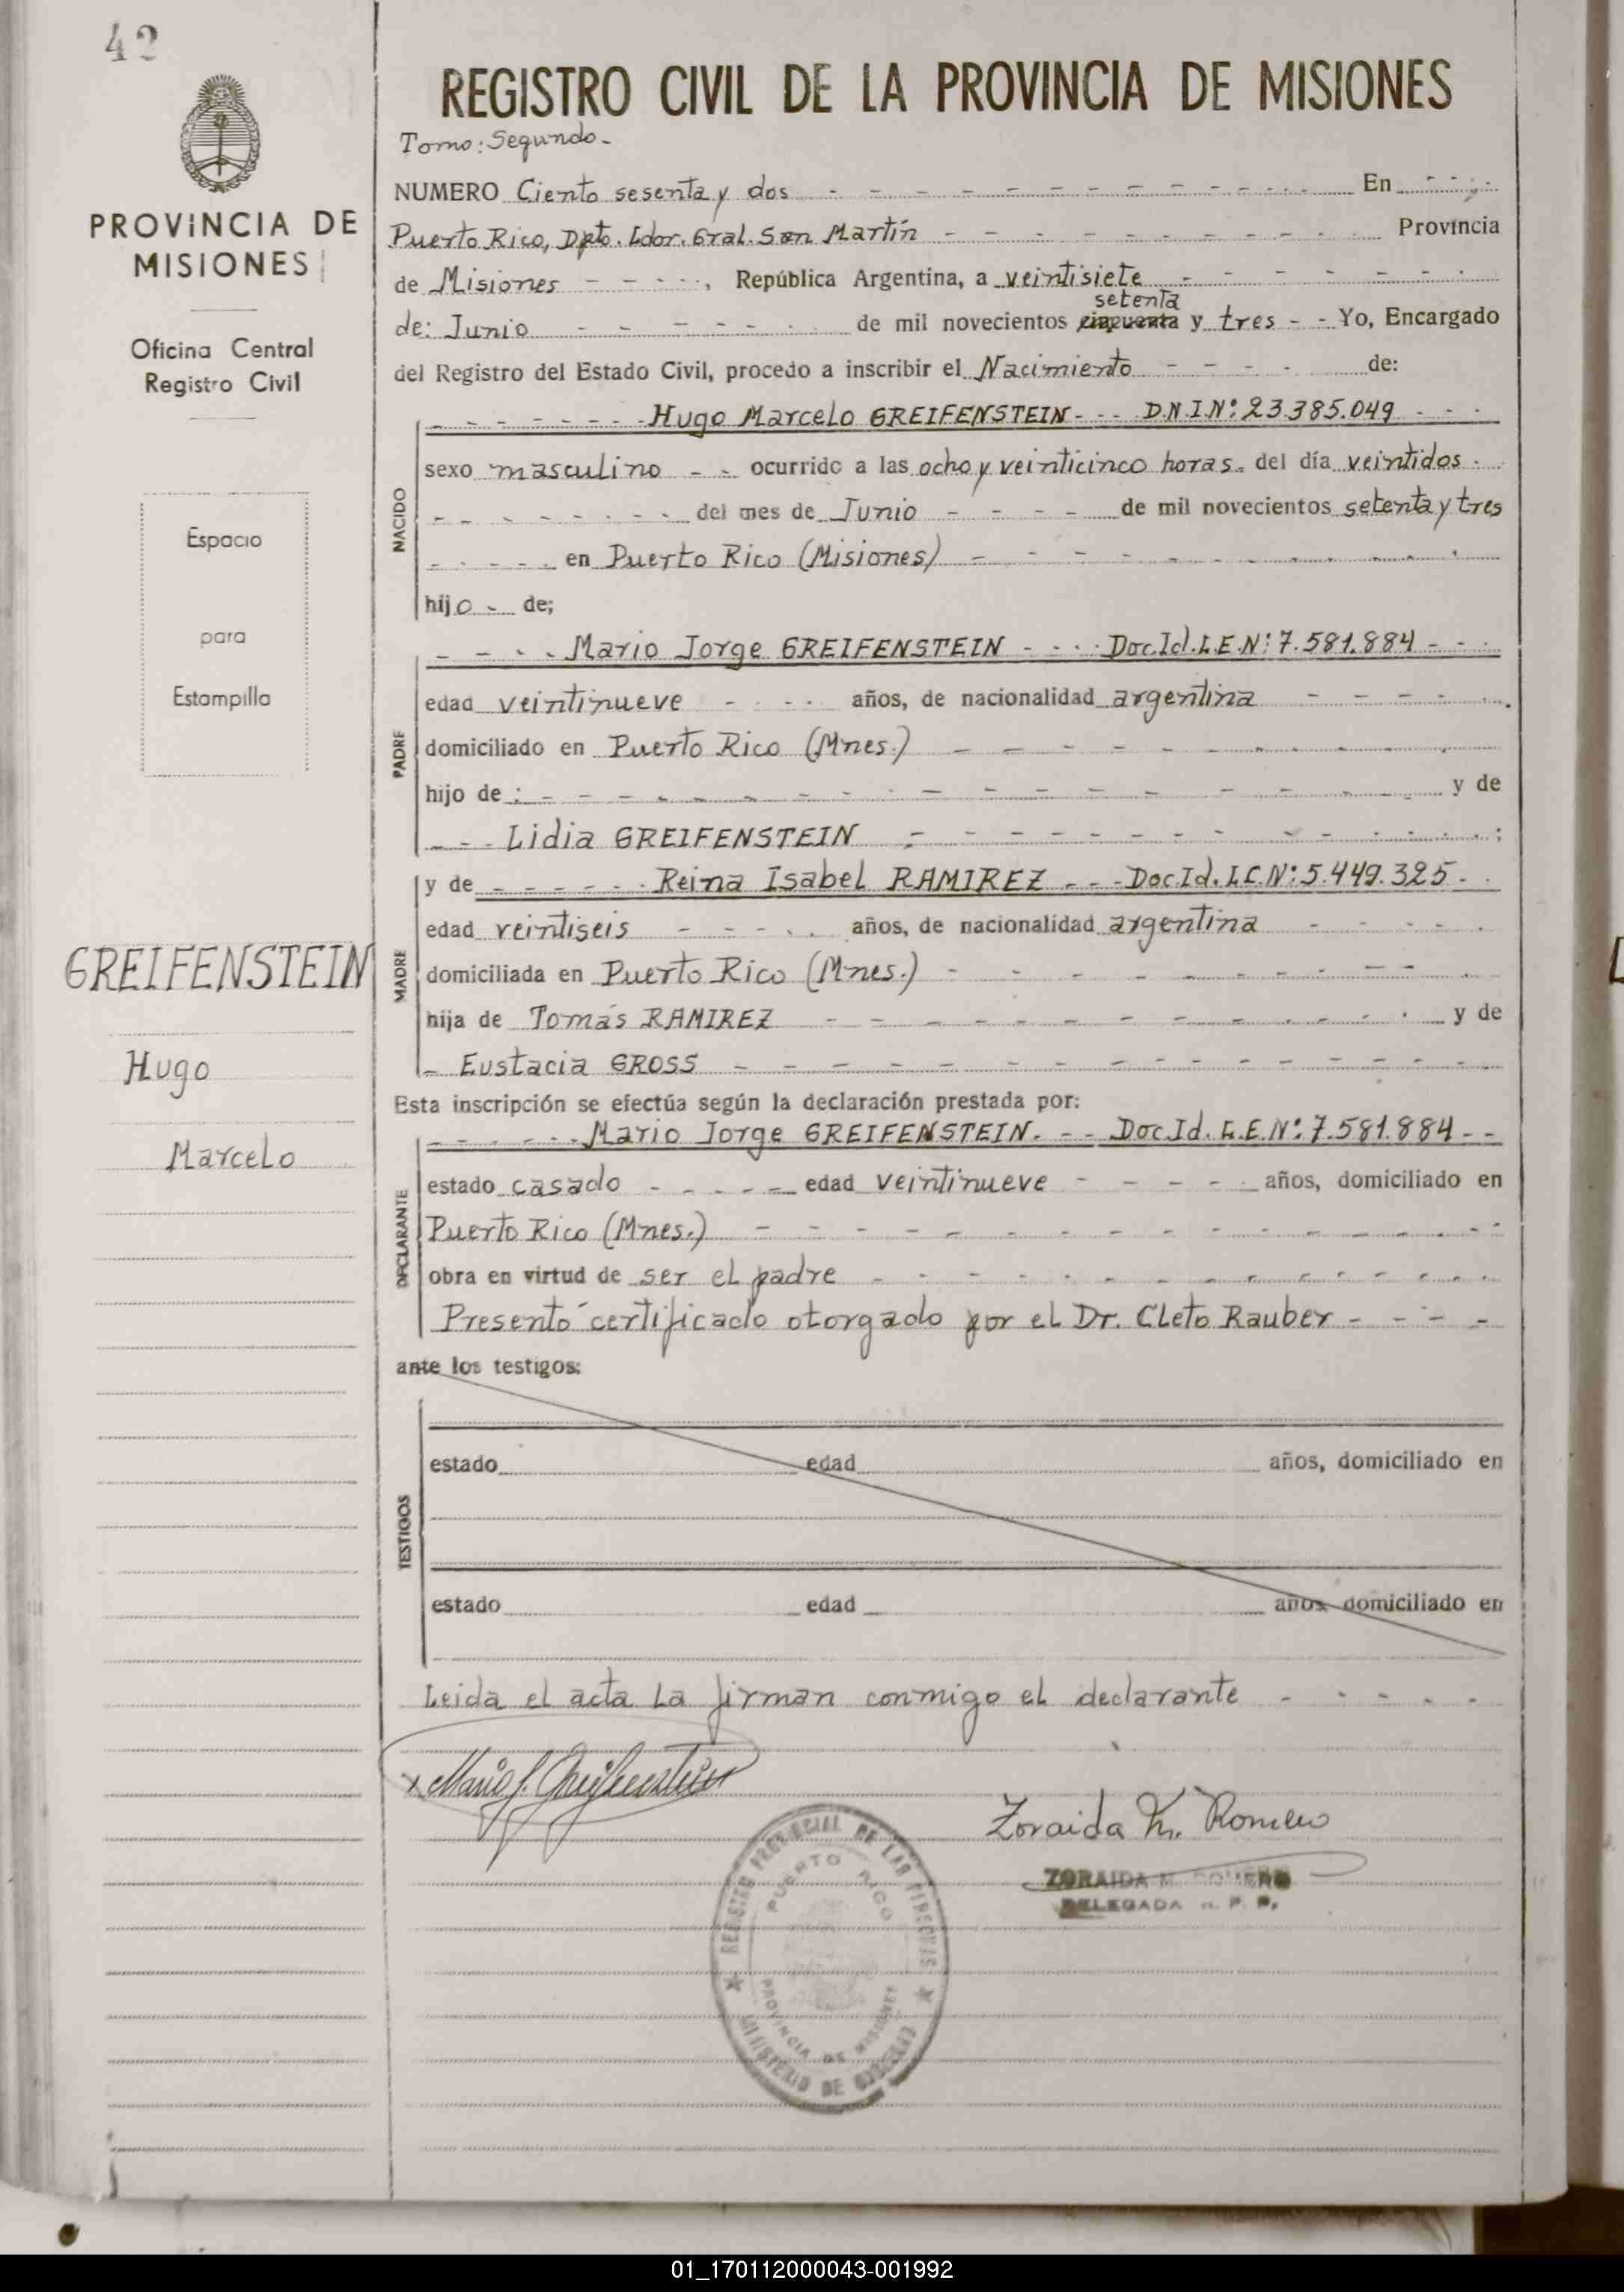 42
PROVINCIA DE
MISIONES
Oficina Central
Registro Civil
Espacio
para
Estampilla
GREIFENSTEIN
Hugo
Marcelo
REGISTRO CIVIL DE LA PROVINCIA DE MISIONES
Tomo: Segundo.-
NUMERO Ciento sesenta y dos - - - En - -
Puerto Rico, Dpto. Ldor. Gral. San Martín - - - Provincia
de Misiones - - - , República Argentina, a veintisiete - - -
setenta
de: Junio - - - de mil novecientos cincuenta y tres - - Yo, Encargado
del Registro del Estado Civil, procedo a inscribir el Nacimiento - - - de:
NACIDO
- - - Hugo Marcelo GREIFENSTEIN - - - D.N.I.Nº: 23.385.049 - - -
sexo masculino - - ocurrido a las ocho y veinticinco horas. del día veintidos -
- - - del mes de Junio - - - de mil novecientos setenta y tres
- - - en Puerto Rico (Misiones) - - -
hijo - de;
PADRE
- - - Mario Jorge GREIFENSTEIN - - - Doc.Id.L.E.Nº: 7.581.884 - - -
edad veintinueve - - - años, de nacionalidad argentina - - -
domiciliado en Puerto Rico (Mnes.) - - -
hijo de : - - - y de
- - - Lidia GREIFENSTEIN - - - ;
MADRE
y de - - - Reina Isabel RAMIREZ - - - Doc.Id.L.C.Nº: 5.449.325 - -
edad veintiseis - - - años, de nacionalidad argentina - - -
domiciliada en Puerto Rico (Mnes.) - - -
hija de Tomás RAMIREZ - - - y de
- Eustacia GROSS - - -
Esta inscripción se efectúa según la declaración prestada por:
DECLARANTE
- - - Mario Jorge GREIFENSTEIN. - - Doc.Id.L.E.Nº: 7.581.884 - -
estado casado - - - edad veintinueve - - - años, domiciliado en
Puerto Rico (Mnes.) - - -
obra en virtud de ser el padre - - -
Presentó certificado otorgado por el Dr. Cleto Rauber - - -
ante los testigos:
TESTIGOS
estado edad años, domiciliado en
estado edad años, domiciliado en
Leida el acta la firman conmigo el declarante - - -
x Mario J. Greifenstein
Zoraida M. Romero
ZORAIDA M. ROMERO
DELEGADA R. P. P.
REGISTRO PROVINCIAL DE LAS PERSONAS
PUERTO RICO
PROVINCIA DE MISIONES
MINISTERIO DE GOBIERNO
01_170112000043-001992